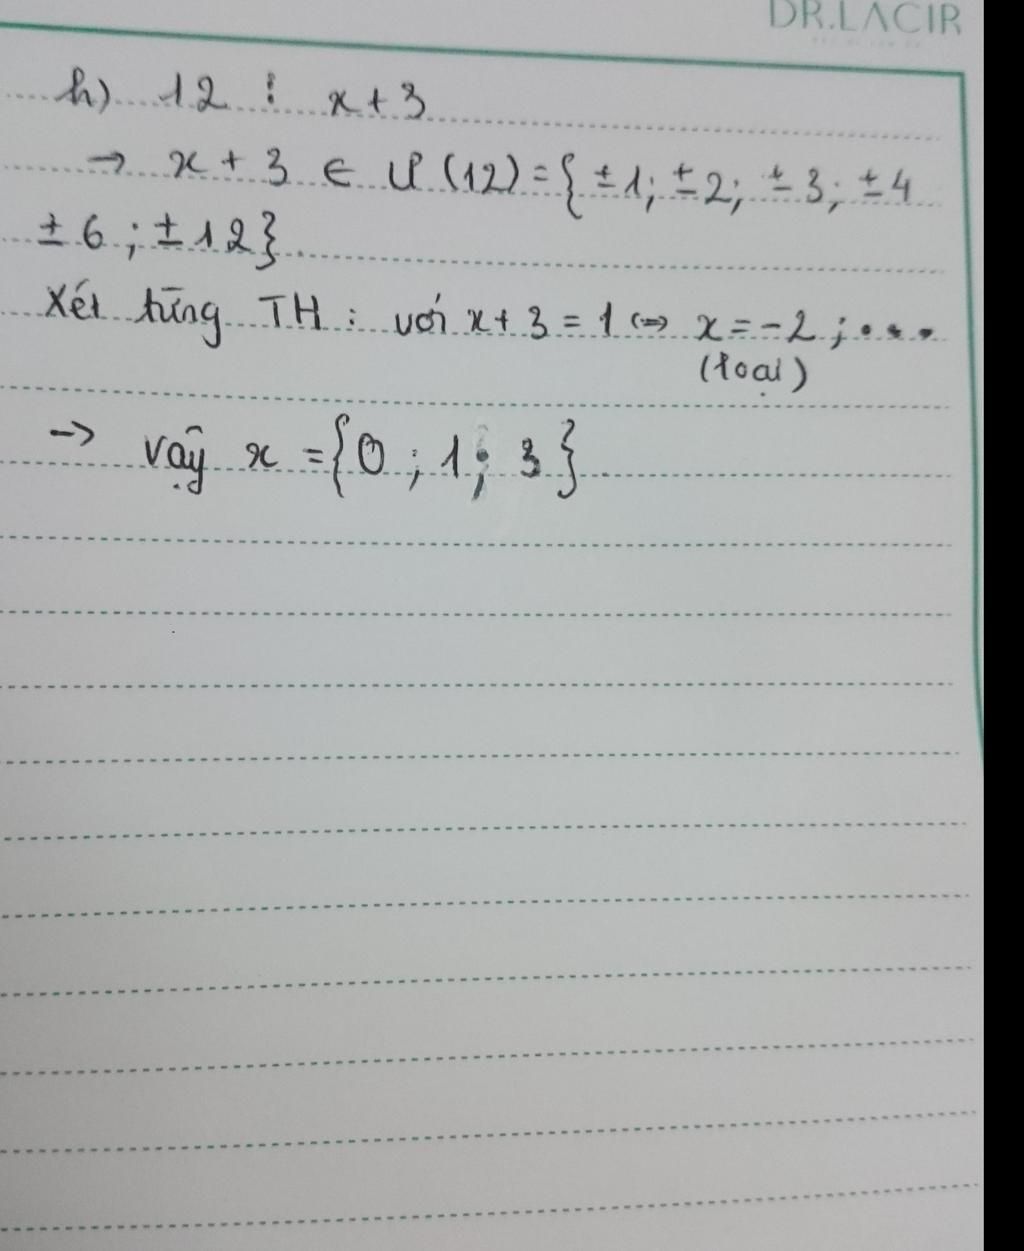 DR.LACIR
h) 12 ⋮ x+3
→ x+3 ∈ Ư(12)={±1;±2;±3;±4
±6;±12}
Xét từng TH: với x+3=1 ⇔ x=-2;....
(loại)
→ vậy x={0;1;3}